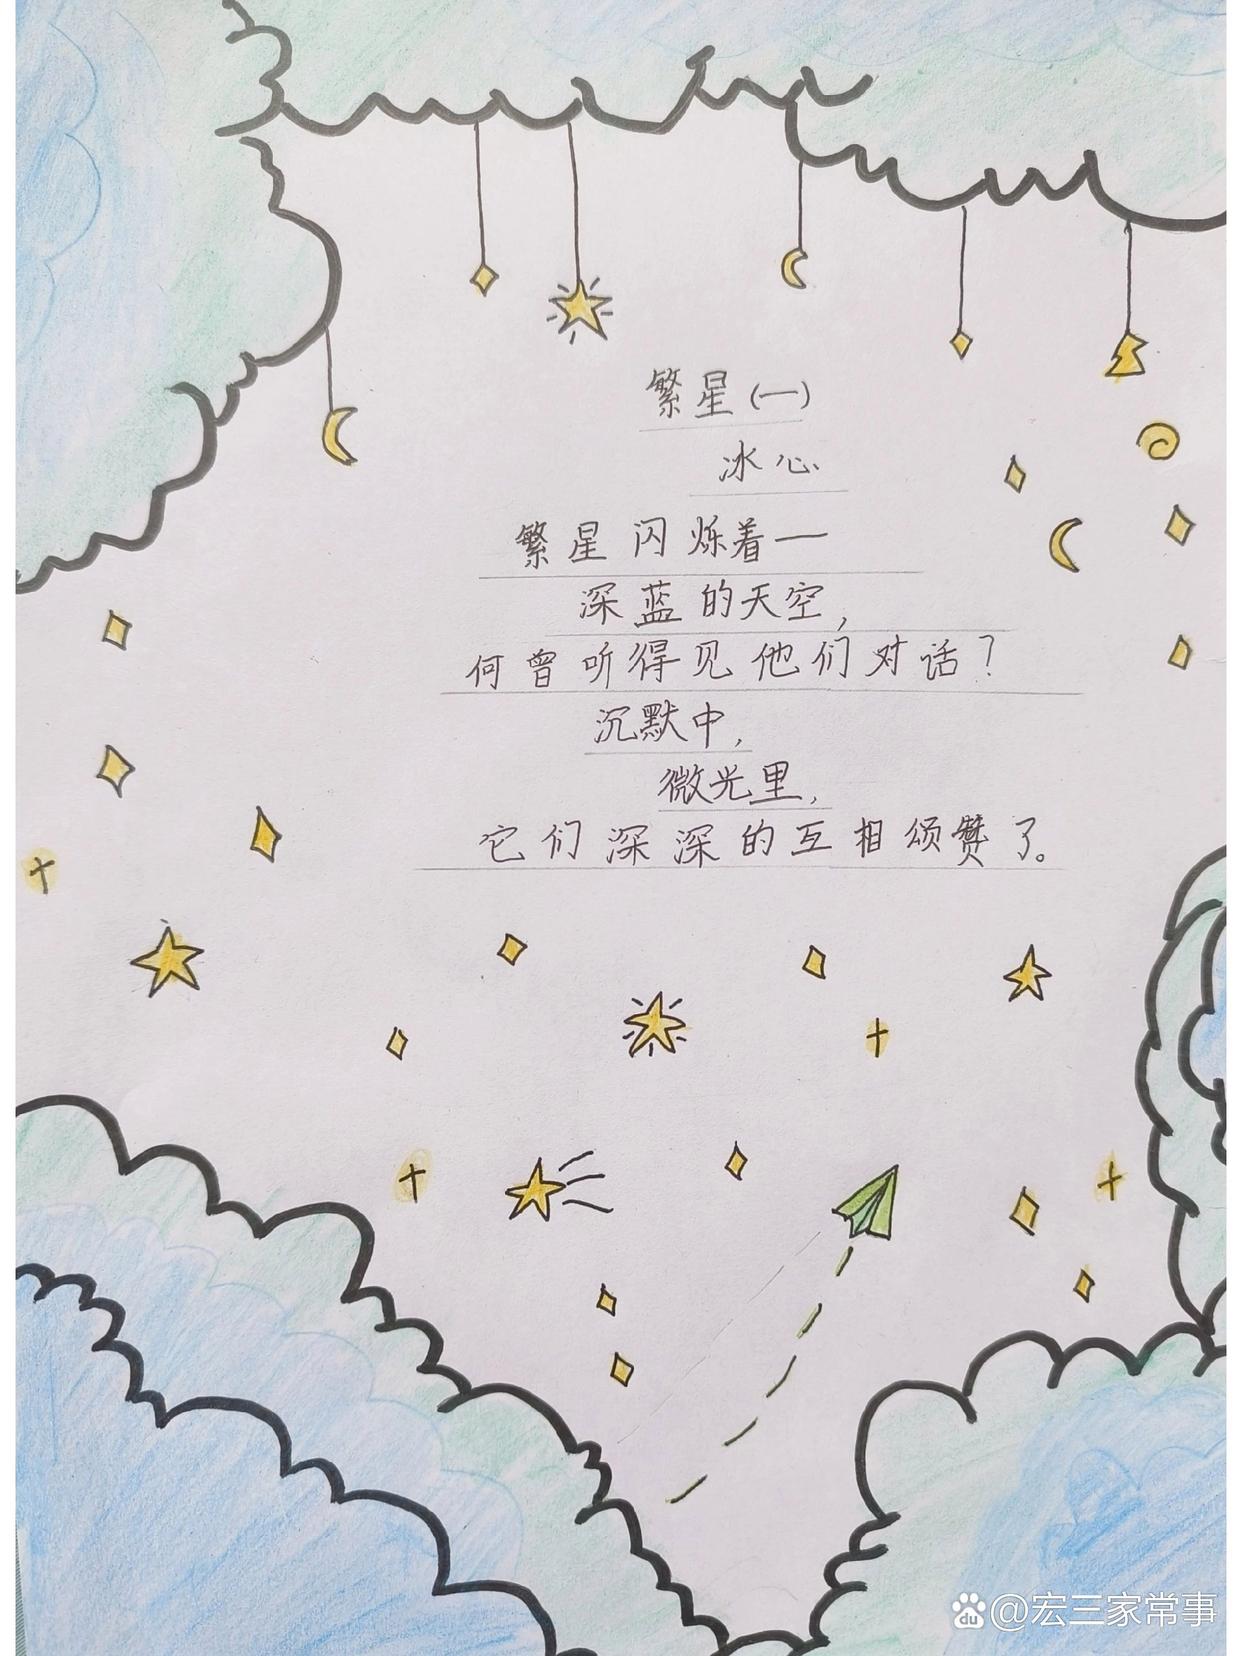 繁星(一)
冰心
繁星闪烁着一
深蓝的天空,
何曾听得见他们对话?
沉默中,
微光里,
它们深深的互相颂赞了。
du @宏三家常事